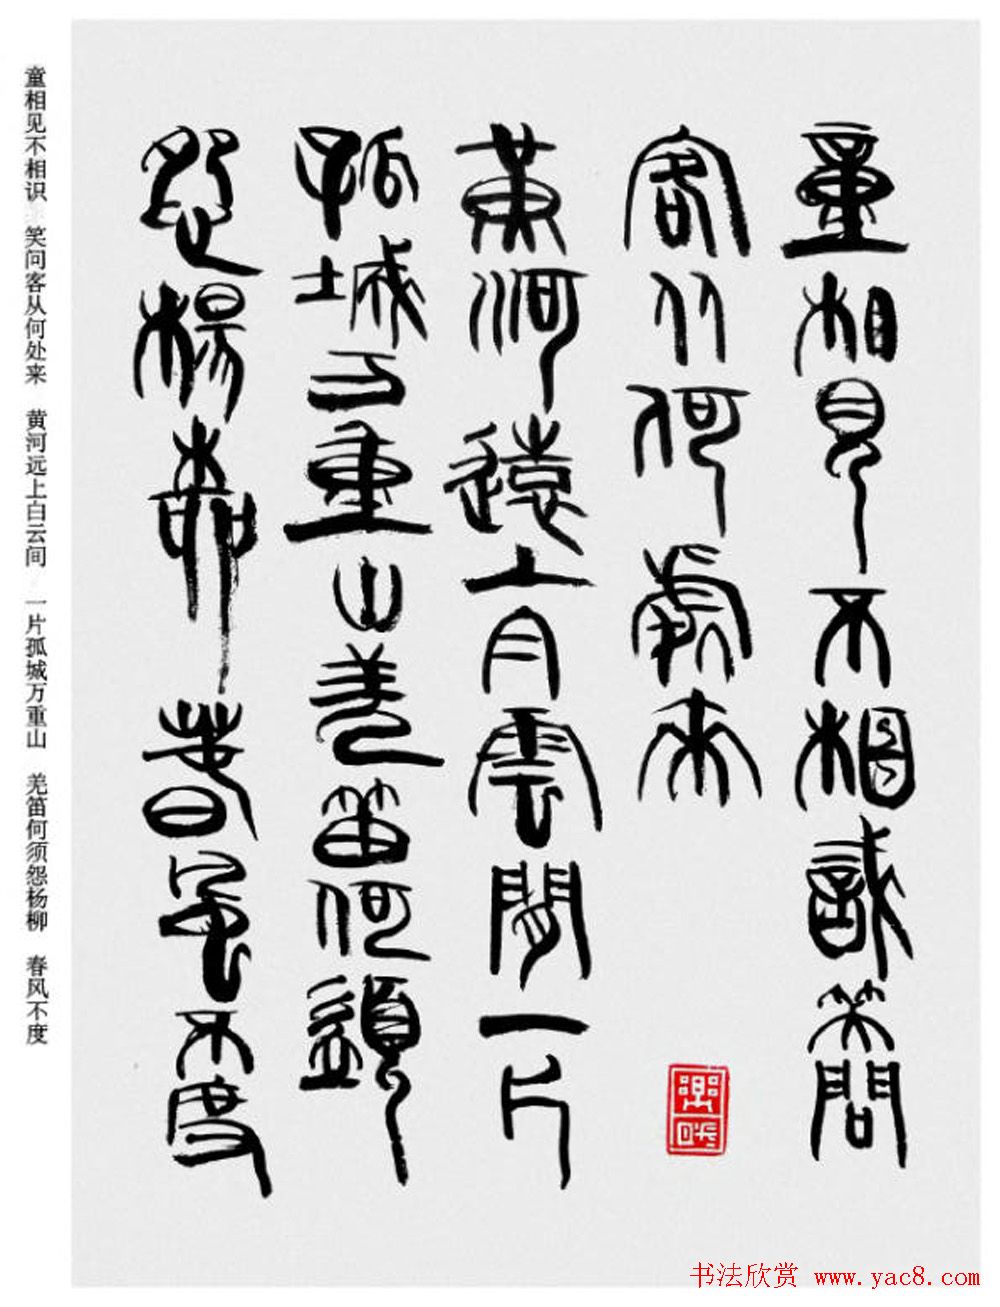 童相見不相識笑問
客从何處來
黃河遠上白雲閒一片
孤城万重山羌笛何須
怨楊柳春風不度
童相见不相识 笑问客从何处来 黄河远上白云间 一片孤城万重山 羌笛何须怨杨柳 春风不度
书法欣赏 www.yac8.com